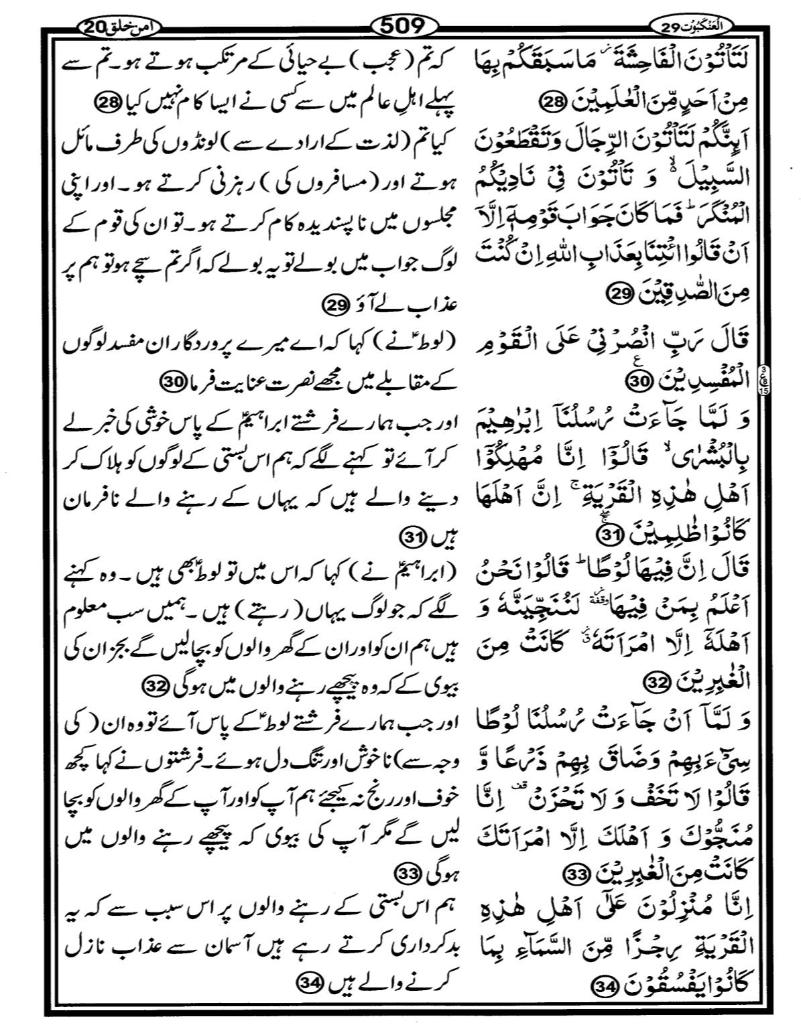 العنكبوت 29
509
امن خلق 20
لَتَاْتُوْنَ الْفَاحِشَةَ ۫ مَا سَبَقَكُمْ بِهَا
مِنْ اَحَدٍ مِّنَ الْعٰلَمِيْنَ 28
اَىِٕنَّكُمْ لَتَاْتُوْنَ الرِّجَالَ وَ تَقْطَعُوْنَ
السَّبِيْلَ ۙ۬ وَ تَاْتُوْنَ فِيْ نَادِيْكُمُ
الْمُنْكَرَ ؕ فَمَا كَانَ جَوَابَ قَوْمِهٖۤ اِلَّاۤ
اَنْ قَالُوا ائْتِنَا بِعَذَابِ اللّٰهِ اِنْ كُنْتَ
مِنَ الصّٰدِقِيْنَ 29
قَالَ رَبِّ انْصُرْنِيْ عَلَى الْقَوْمِ
الْمُفْسِدِيْنَ ع 30
وَ لَمَّا جَآءَتْ رُسُلُنَاۤ اِبْرٰهِيْمَ
بِالْبُشْرٰى ۙ قَالُوْۤا اِنَّا مُهْلِكُوْۤا
اَهْلِ هٰذِهِ الْقَرْيَةِ ۚ اِنَّ اَهْلَهَا
كَانُوْا ظٰلِمِيْنَ 31
قَالَ اِنَّ فِيْهَا لُوْطًا ؕ قَالُوْا نَحْنُ
اَعْلَمُ بِمَنْ فِيْهَا ۥ٘ لَنُنَجِّيَنَّهٗ وَ
اَهْلَهٗۤ اِلَّا امْرَاَتَهٗ ٘ۗ كَانَتْ مِنَ
الْغٰبِرِيْنَ 32
وَ لَمَّاۤ اَنْ جَآءَتْ رُسُلُنَا لُوْطًا
سِيْٓءَ بِهِمْ وَ ضَاقَ بِهِمْ ذَرْعًا وَّ
قَالُوْا لَا تَخَفْ وَ لَا تَحْزَنْ ۫ اِنَّا
مُنَجُّوْكَ وَ اَهْلَكَ اِلَّا امْرَاَتَكَ
كَانَتْ مِنَ الْغٰبِرِيْنَ 33
اِنَّا مُنْزِلُوْنَ عَلٰۤى اَهْلِ هٰذِهِ
الْقَرْيَةِ رِجْزًا مِّنَ السَّمَآءِ بِمَا
كَانُوْا يَفْسُقُوْنَ 34
کہ تم (عجب) بے حیائی کے مرتکب ہوتے ہو۔ تم سے
پہلے اہلِ عالم میں سے کسی نے ایسا کام نہیں کیا 28
کیا تم (لذت کے ارادے سے) لونڈوں کی طرف مائل
ہوتے اور (مسافروں کی) رہزنی کرتے ہو۔ اور اپنی
مجلسوں میں ناپسندیدہ کام کرتے ہو۔ تو ان کی قوم کے
لوگ جواب میں بولے تو یہ بولے کہ اگر تم سچے ہو تو ہم پر
عذاب لے آؤ 29
(لوطؑ نے) کہا کہ اے میرے پروردگار ان مفسد لوگوں
کے مقابلے میں مجھے نصرت عنایت فرما 30
اور جب ہمارے فرشتے ابراہیمؑ کے پاس خوشی کی خبر لے
کر آئے تو کہنے لگے کہ ہم اس بستی کے لوگوں کو ہلاک کر
دینے والے ہیں کہ یہاں کے رہنے والے نافرمان
ہیں 31
(ابراہیمؑ نے) کہا کہ اس میں تو لوطؑ بھی ہیں۔ وہ کہنے
لگے کہ جو لوگ یہاں (رہتے) ہیں۔ ہمیں سب معلوم
ہیں ہم ان کو اور ان کے گھر والوں کو بچا لیں گے بجز ان کی
بیوی کے کہ وہ پیچھے رہنے والوں میں ہوگی 32
اور جب ہمارے فرشتے لوطؑ کے پاس آئے تو وہ ان (کی
وجہ سے) ناخوش اور تنگ دل ہوئے۔ فرشتوں نے کہا کچھ
خوف اور رنج نہ کیجئے ہم آپ کو اور آپ کے گھر والوں کو بچا
لیں گے مگر آپ کی بیوی کہ پیچھے رہنے والوں میں
ہوگی 33
ہم اس بستی کے رہنے والوں پر اس سبب سے کہ یہ
بدکرداری کرتے رہے ہیں آسمان سے عذاب نازل
کرنے والے ہیں 34